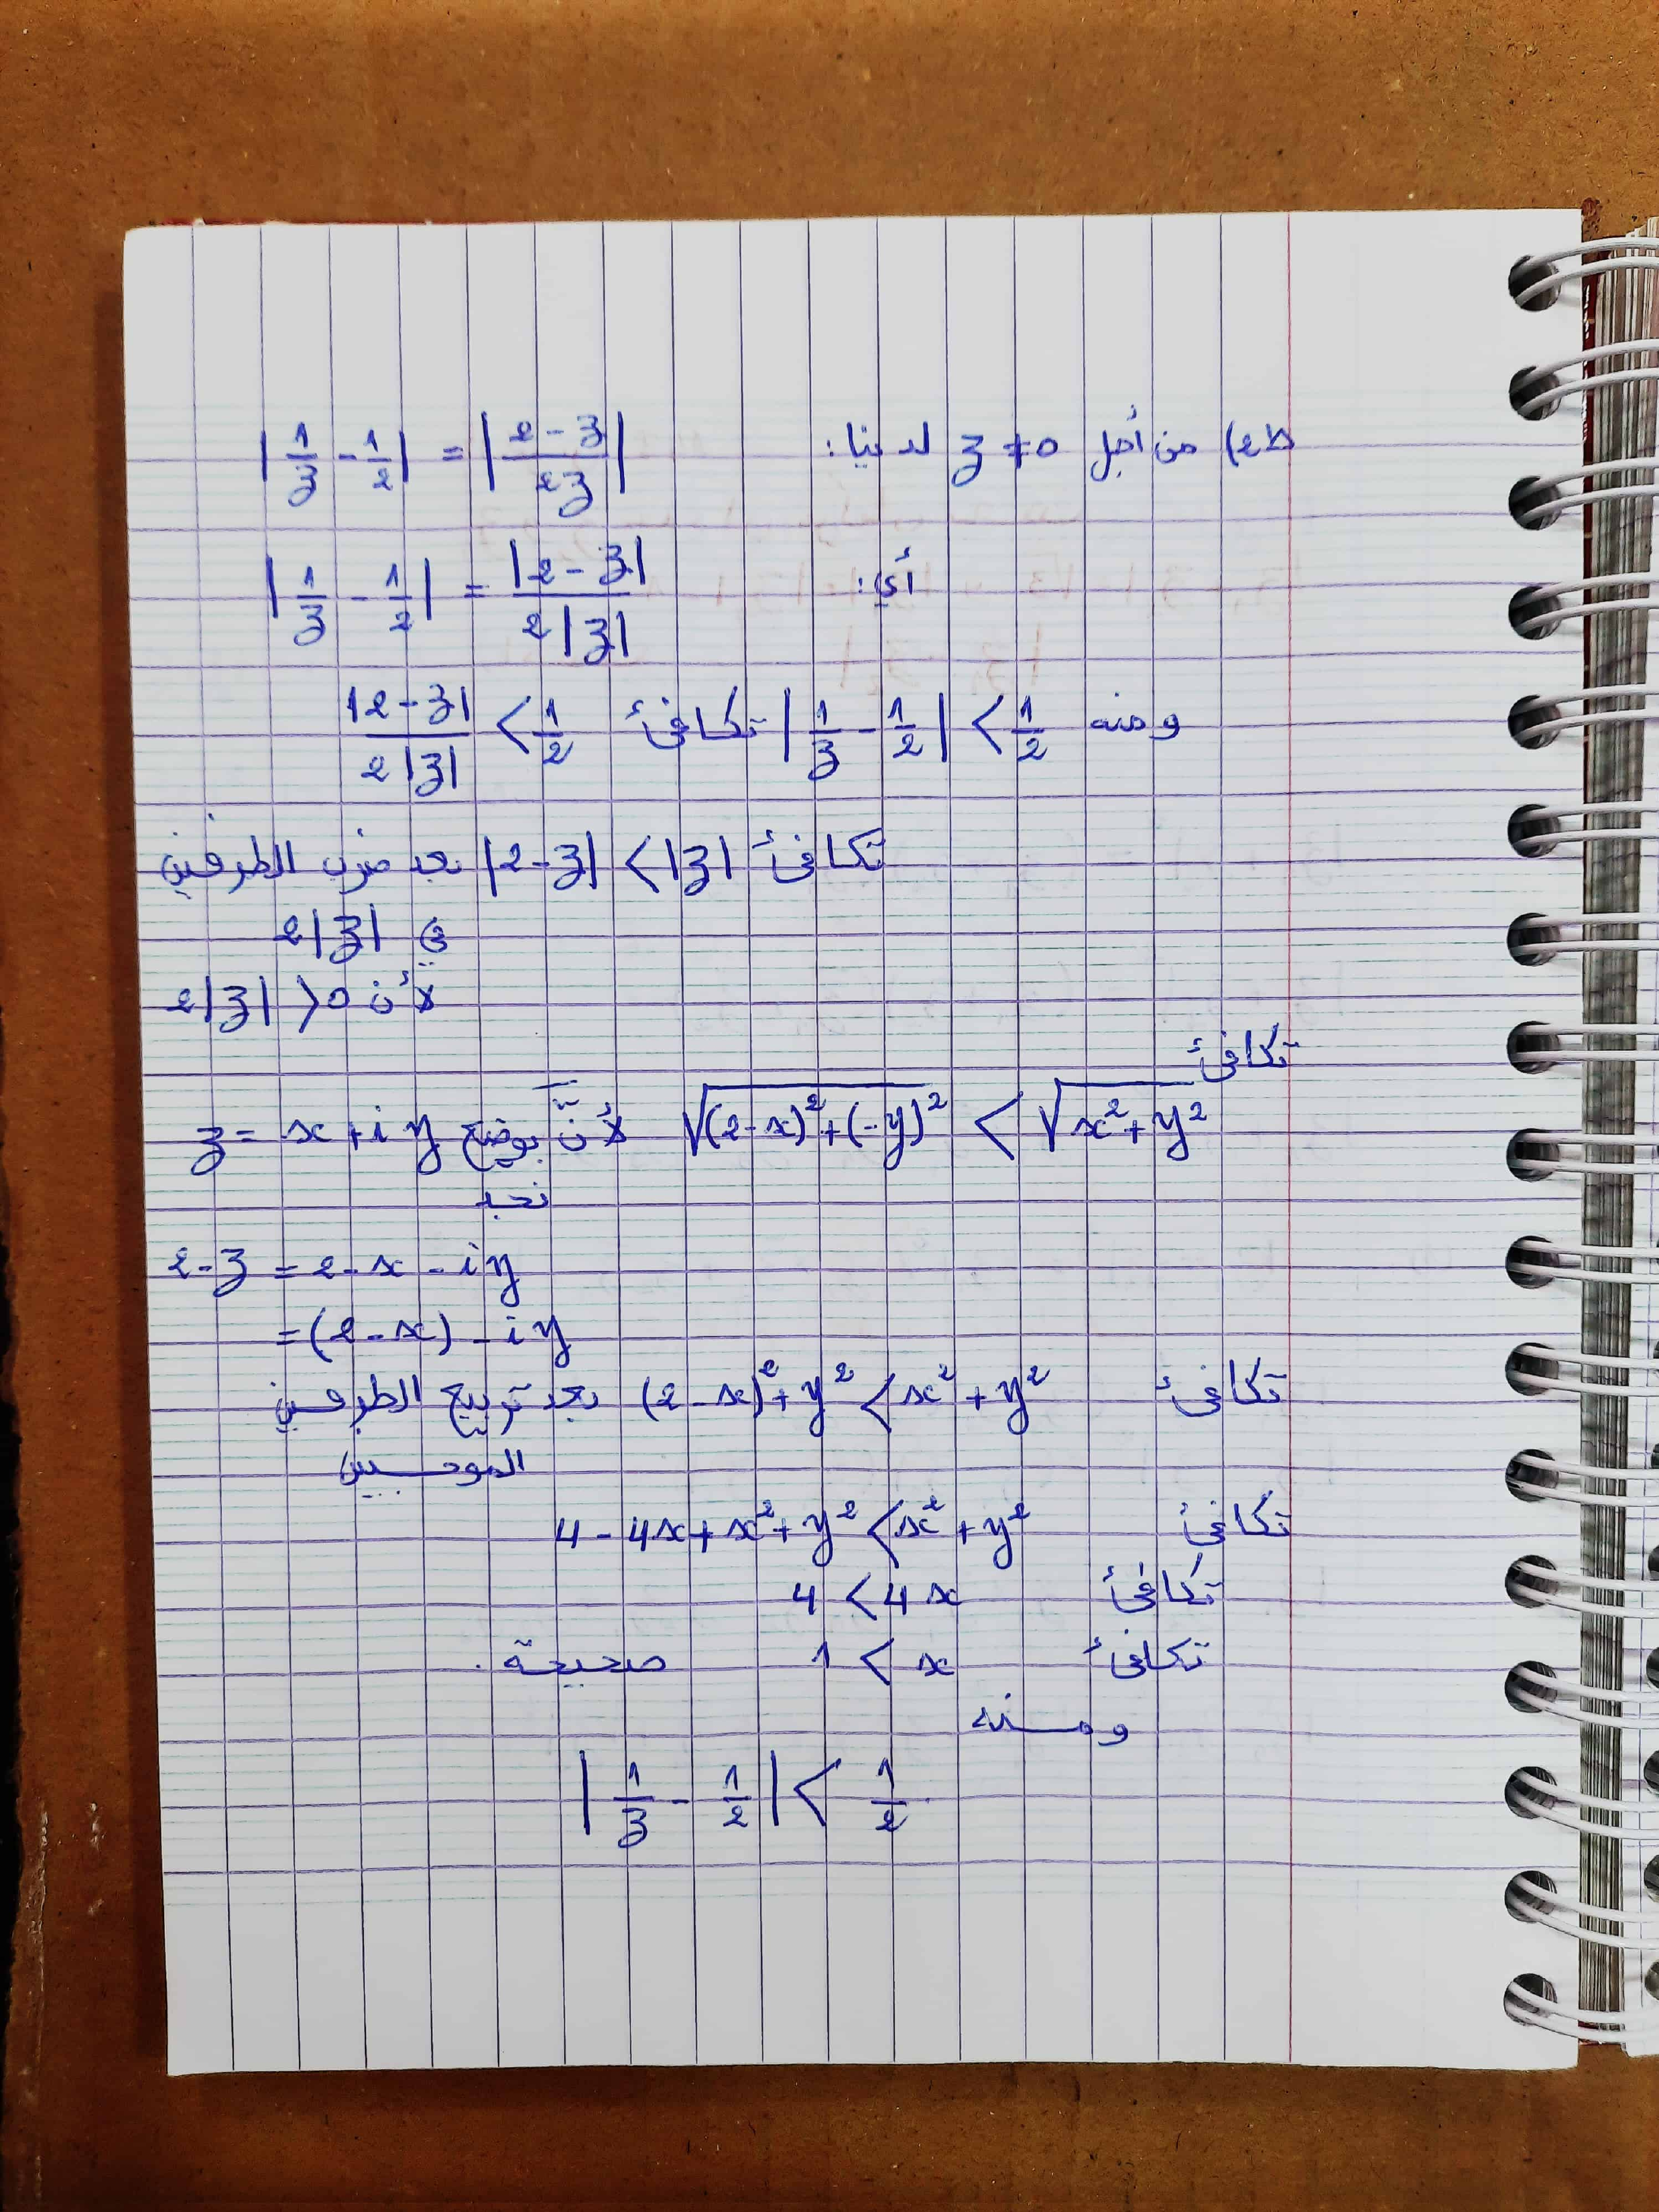 ط2) من أجل z ≠ 0 لدينا: |1/z - 1/2| = |(2-z)/(2z)|
أي: |1/z - 1/2| = |2-z|/(2|z|)
ومنه |1/z - 1/2| < 1/2 تكافئ |2-z|/(2|z|) < 1/2
تكافئ |2-z| < |z| بعد ضرب الطرفين
في 2|z|
لأن 2|z| > 0
تكافئ
√((2-x)²+(-y)²) < √(x²+y²) لأنّ بوضع z = x+iy
نجد
2-z = 2-x-iy
=(2-x)-iy
تكافئ (2-x)²+y² < x²+y² بعد تربيع الطرفين
الموجبين
تكافئ 4-4x+x²+y² < x²+y²
تكافئ 4 < 4x
تكافئ 1 < x صحيحة.
ومنه
|1/z - 1/2| < 1/2